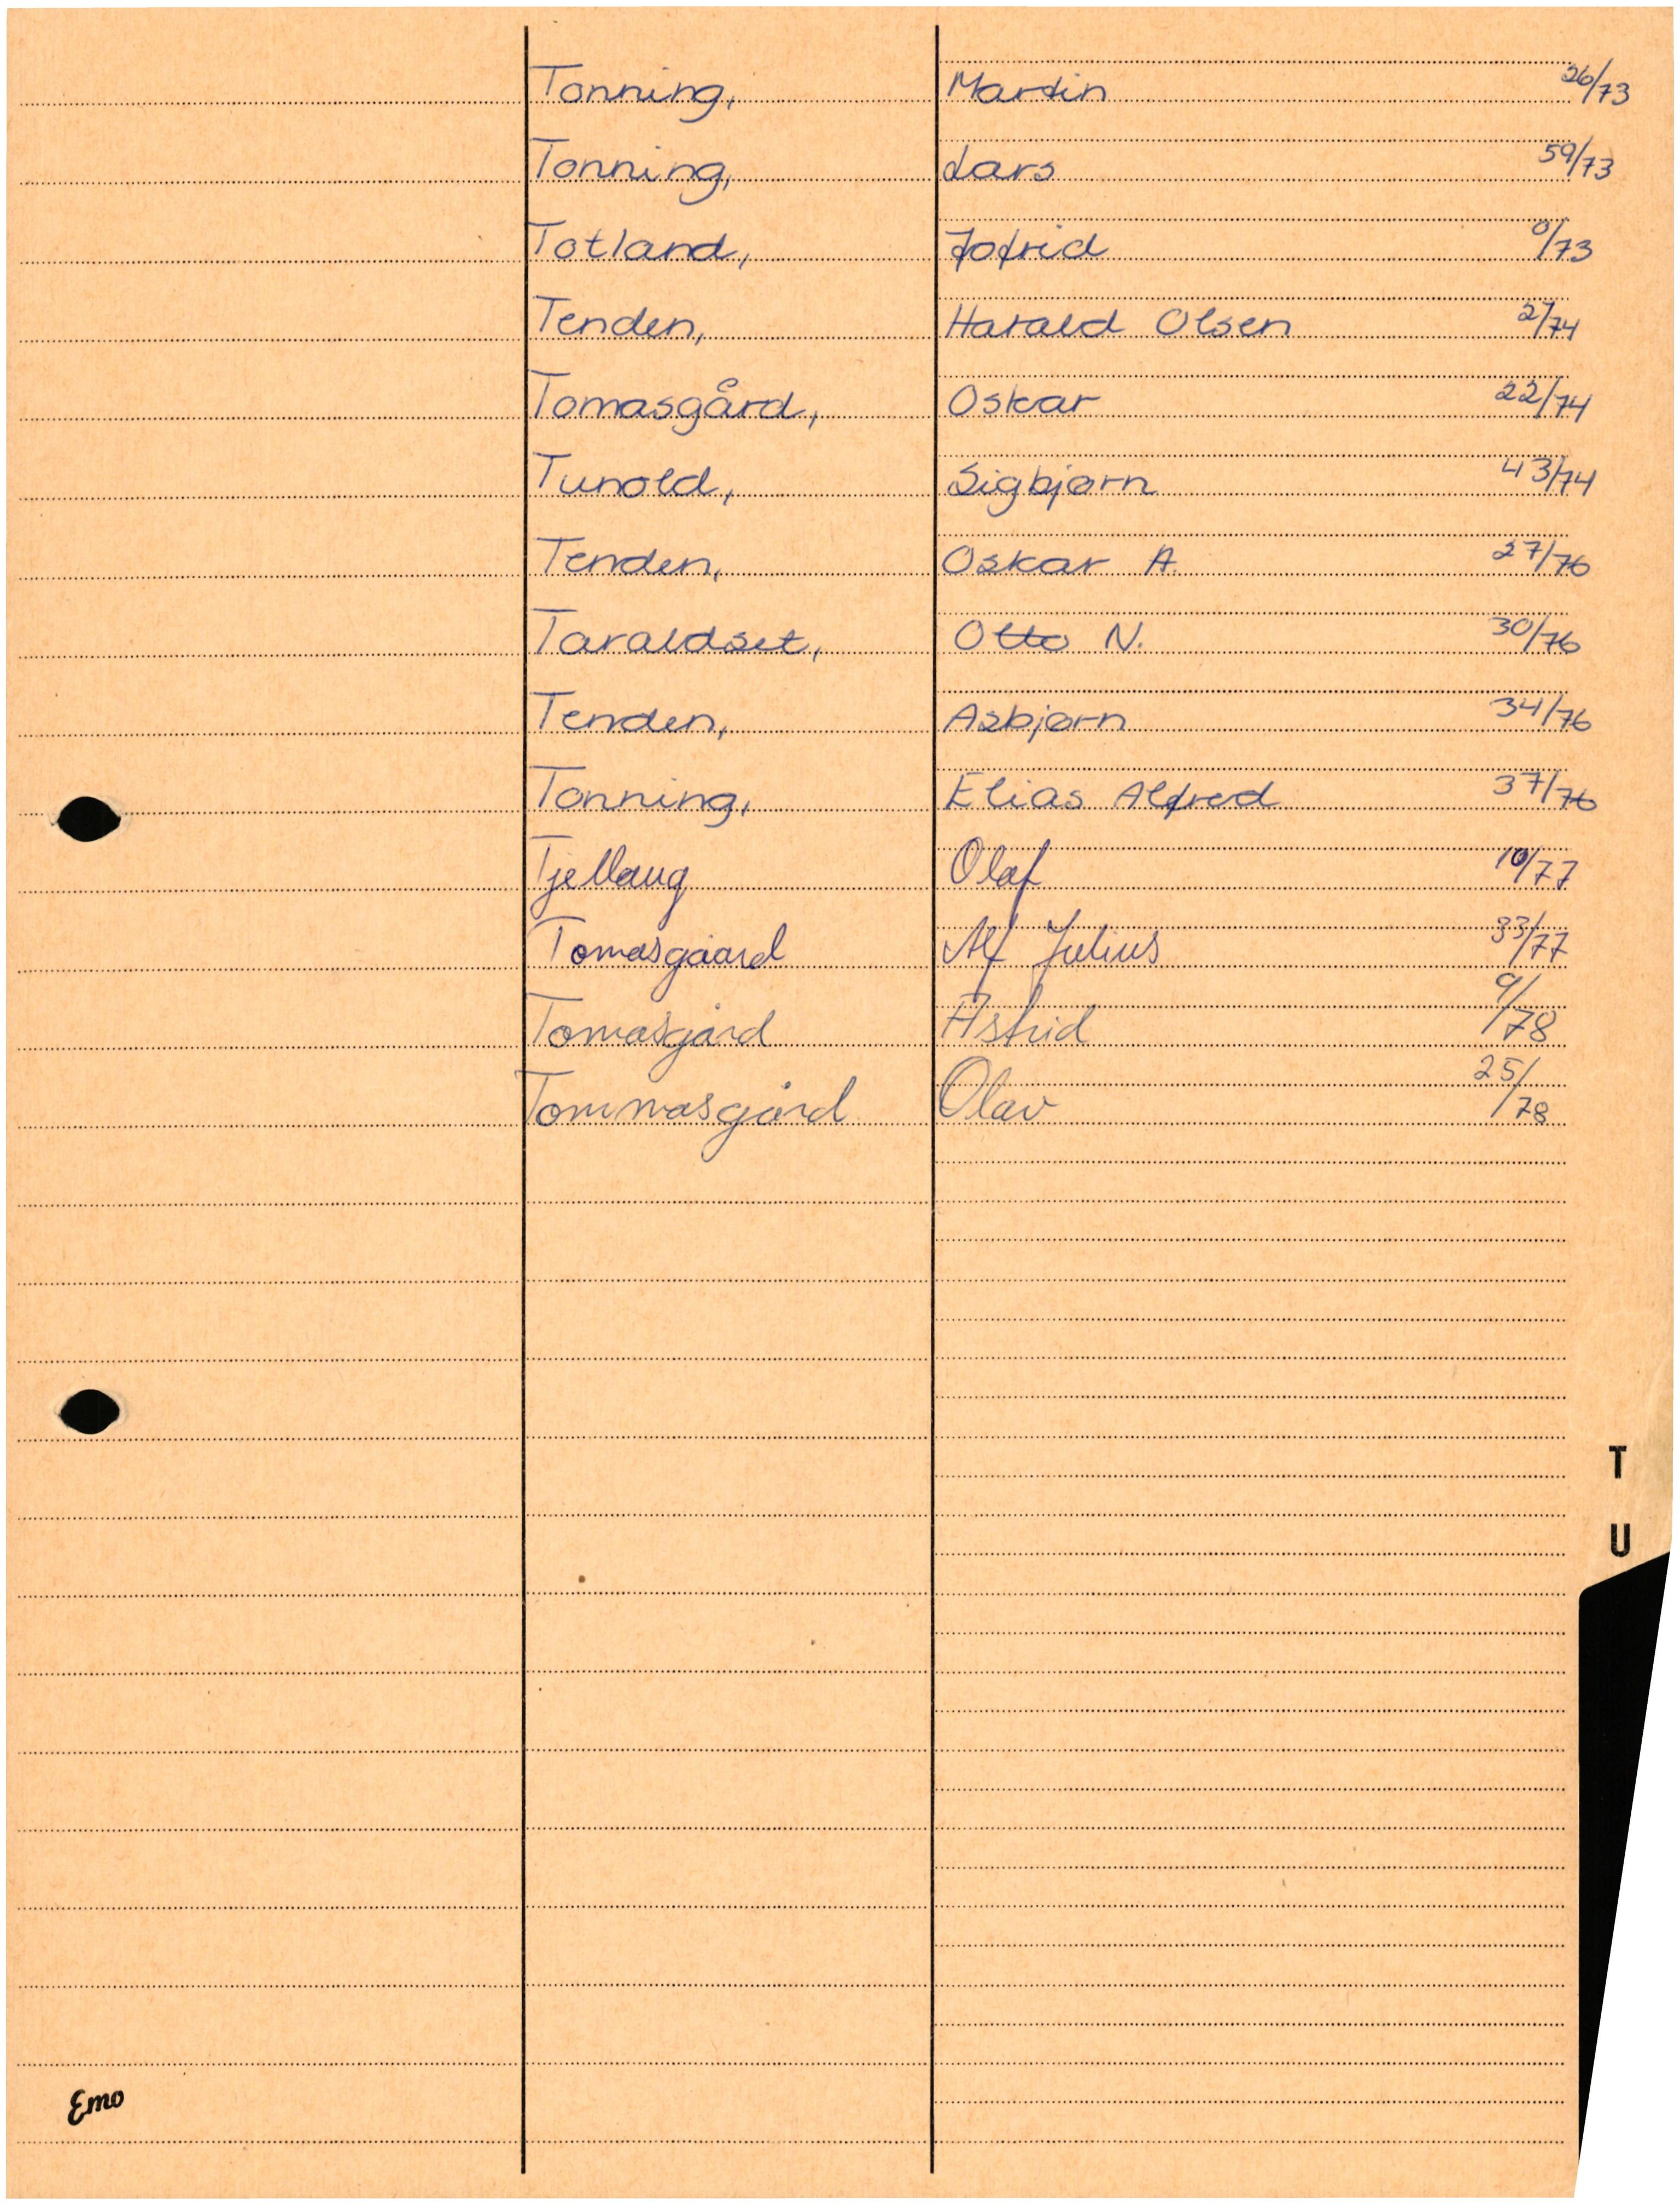 Tonning, Martin 26/73
Tonning, Lars 59/73
Totland, Jofrid 0/73
Tenden, Harald Olsen 27/74
Tomasgård, Oskar 22/74
Tunold, Sigbjørn 43/74
Tenden, Oskar A. 27/76
Taraldset, Otto N. 30/76
Tenden, Asbjørn 34/76
Tonning, Elias Alfred 37/76
Tjellaug Olaf 10/77
Tomasgaard Alf Julius 33/77
Tomasgård Astrid 9/78
Tommasgård Olav 25/78
T
U
Emo